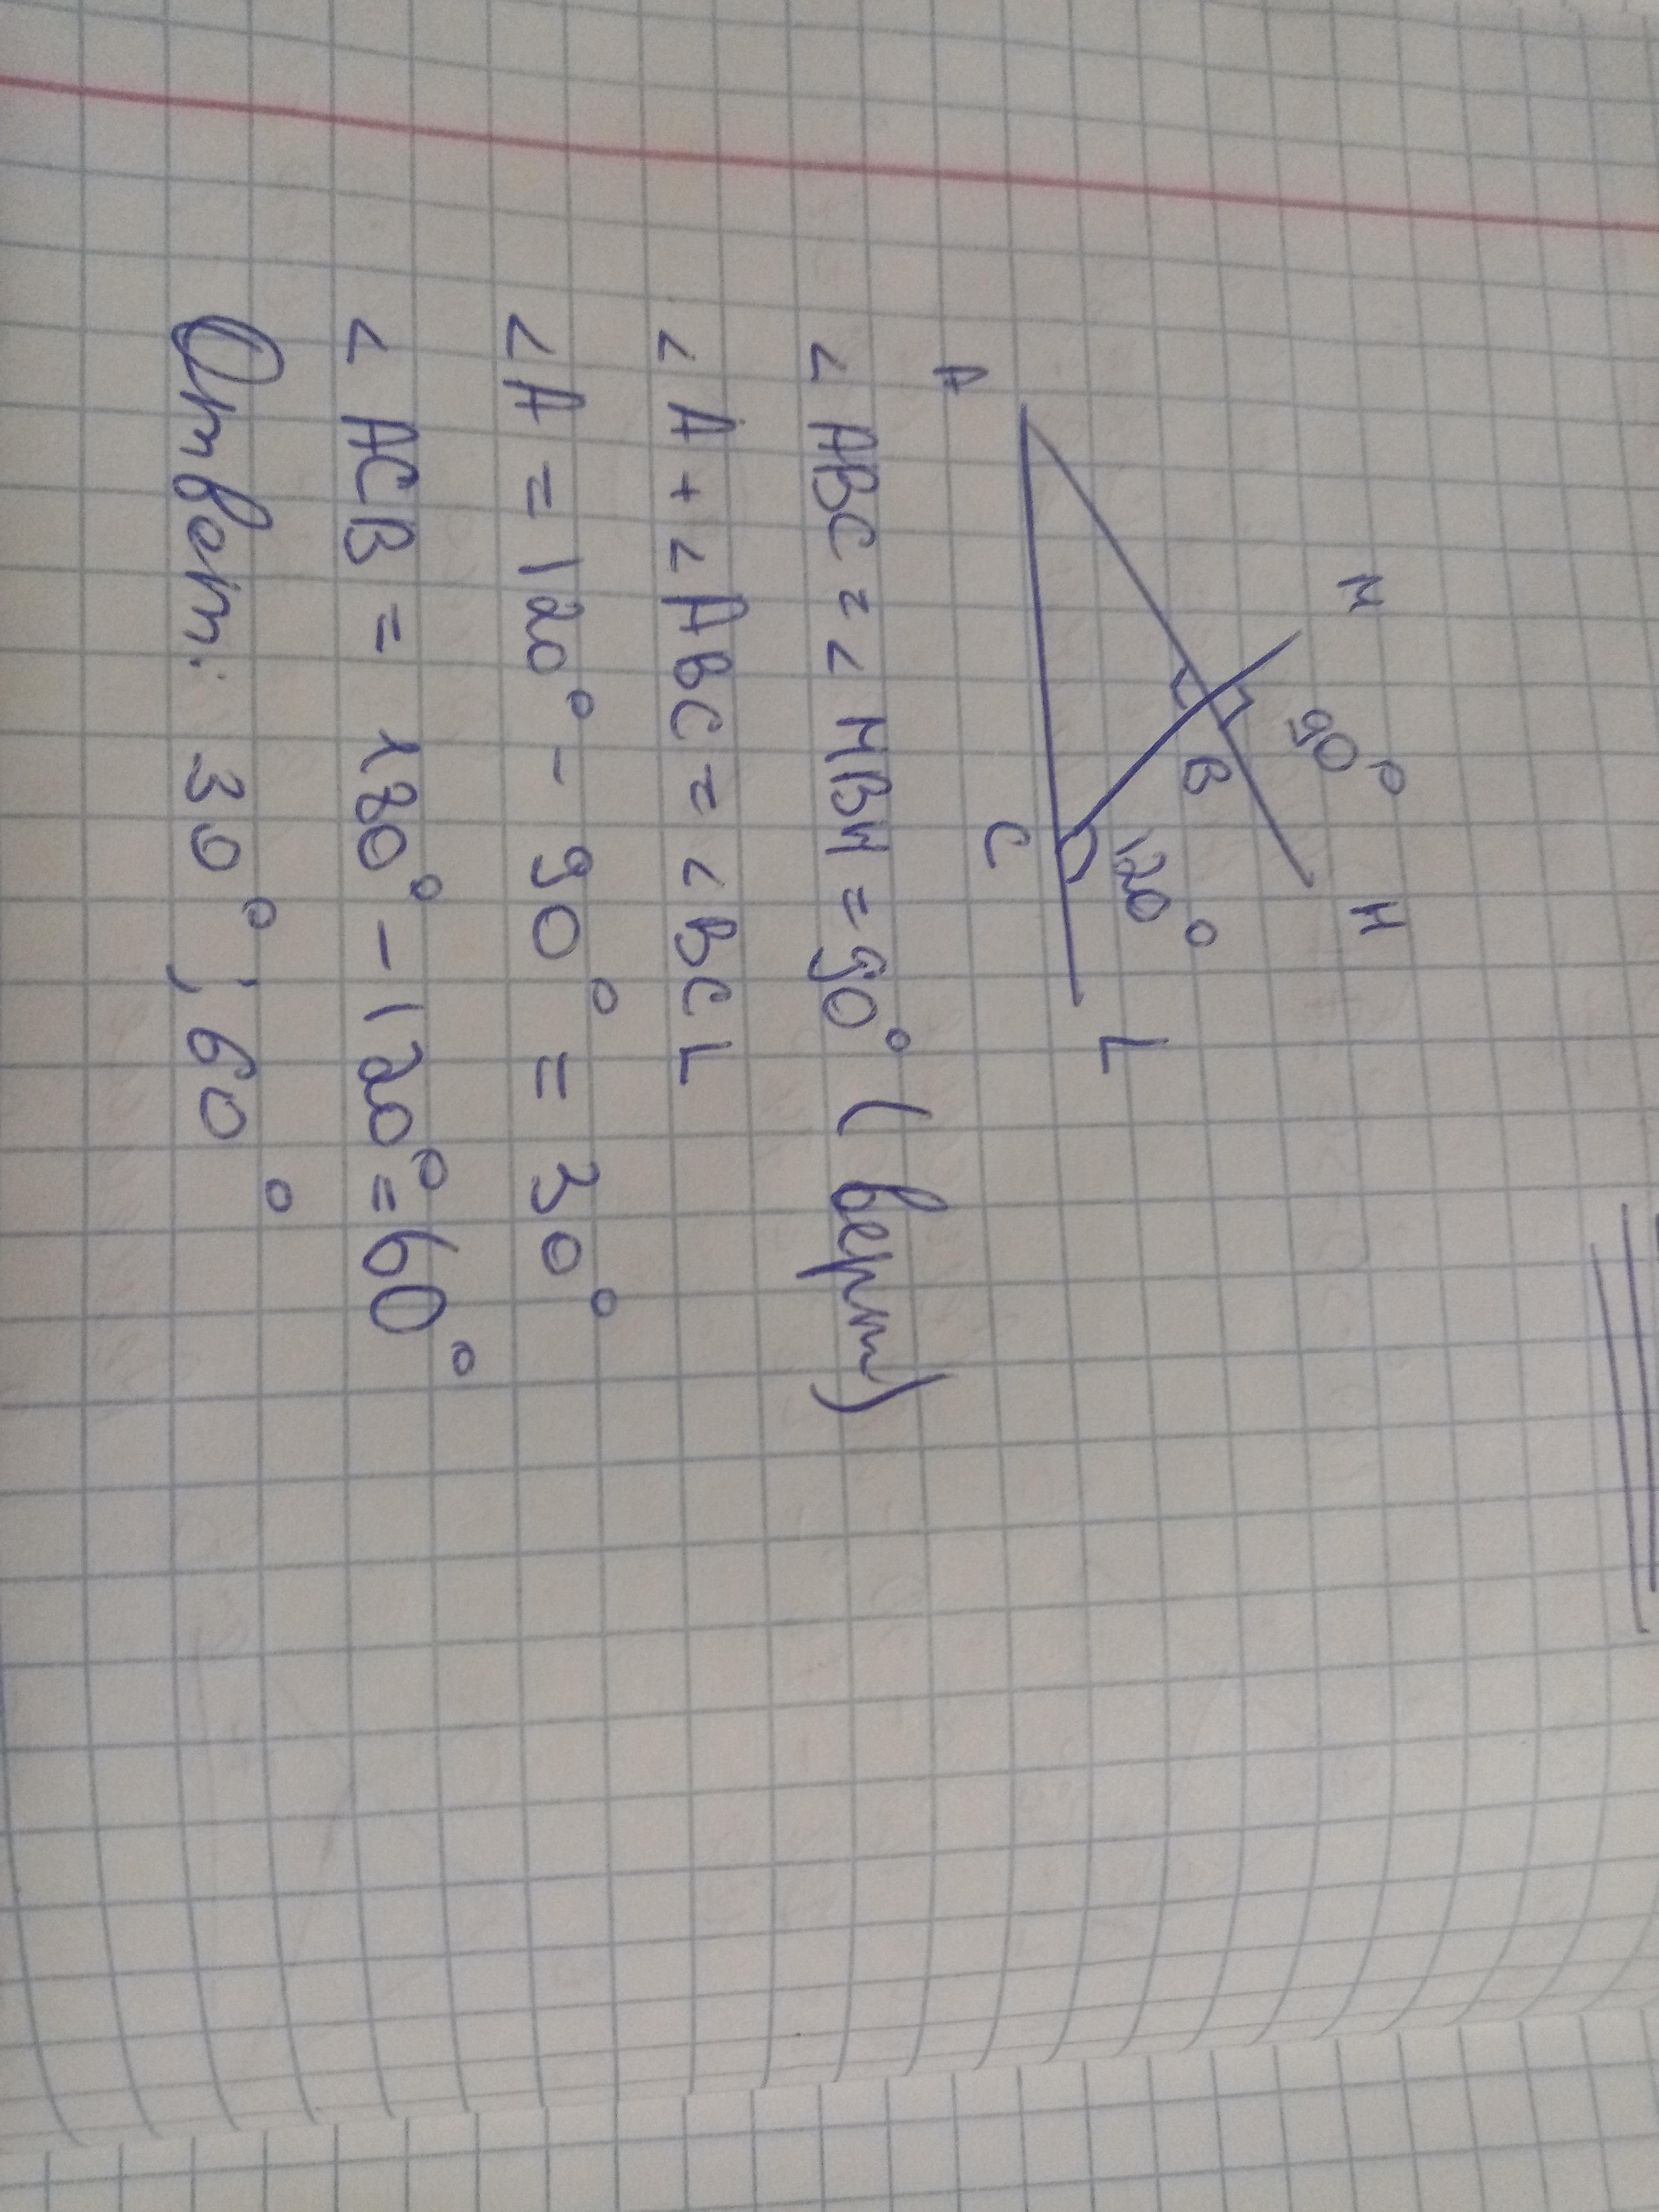 M
H
90°
B
120°
A
C
L
< ABC = < MBH = 90° ( верт)
< A + < ABC = < BCL
< A = 120° - 90° = 30°
< ACB = 180° - 120° = 60°
Ответ: 30° ; 60°